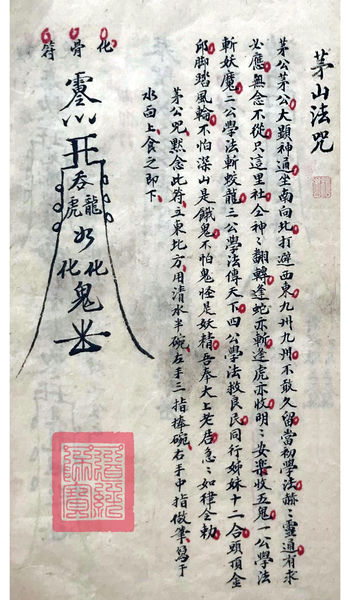 茅山法咒
茅公茅公大顯神通坐南向北打遊西東九州九州不敢久留當初學法赫〻靈通有求
必應無念不從只這里社仝神〻翻轉逢蛇亦斬逢虎亦收明〻安樂收五鬼一公學法
斬妖魔二公學法斬蛟龍三公學法傳天下四公學法救良民同行姊妹十二合頭頂金
邱脚踏風輪不怕深山是餓鬼不怕鬼怪是妖精吾奉太上老君急〻如律令勅
茅公咒黙念此符立東北方用清水半碗左手三指捧碗右手中指做筆寫于
水面上食之即下
化骨符
龍
吞虎
化化
鬼